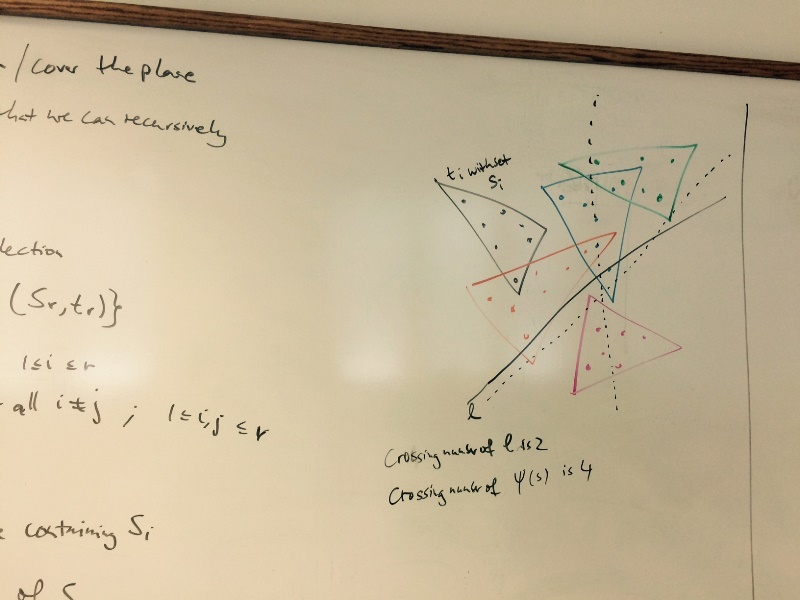 /cover the plane
that we can recursively
lection
(Sr, tr)}
1≤i≤r
all i≠j ; 1≤i,j≤r
containing Si
of S
ti with set
Si
l
Crossing number of l is 2
Crossing number of Ψ(s) is 4